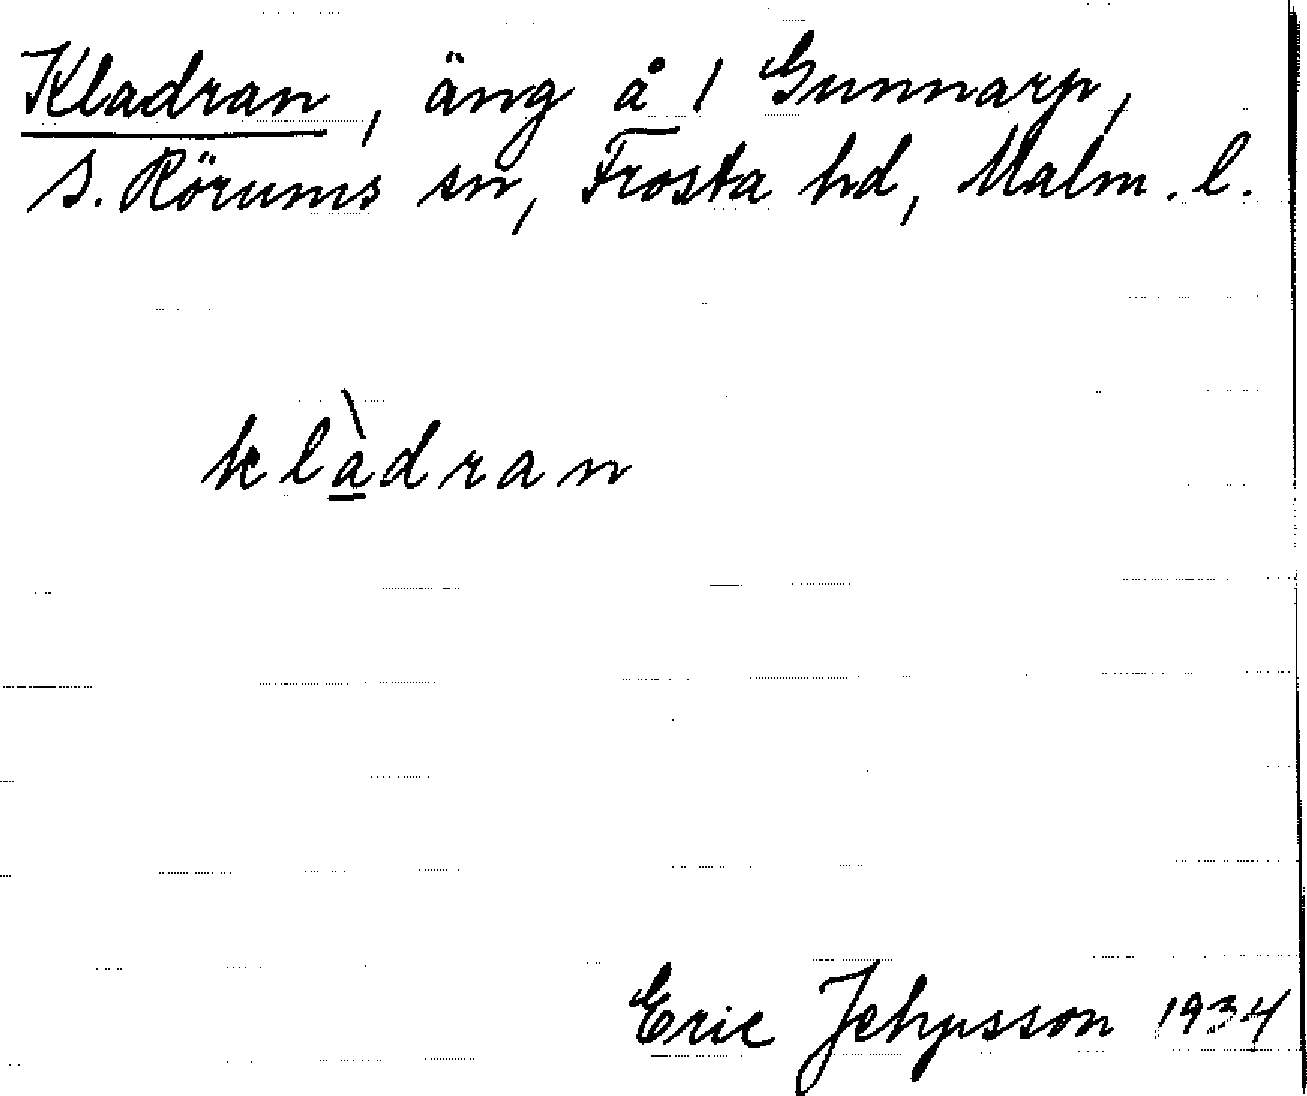 Kladran, äng å 1 Gunnarp,
S. Rörums sn, Frosta hd, Malm. l.
klàdran
Eric Jehpsson 1934